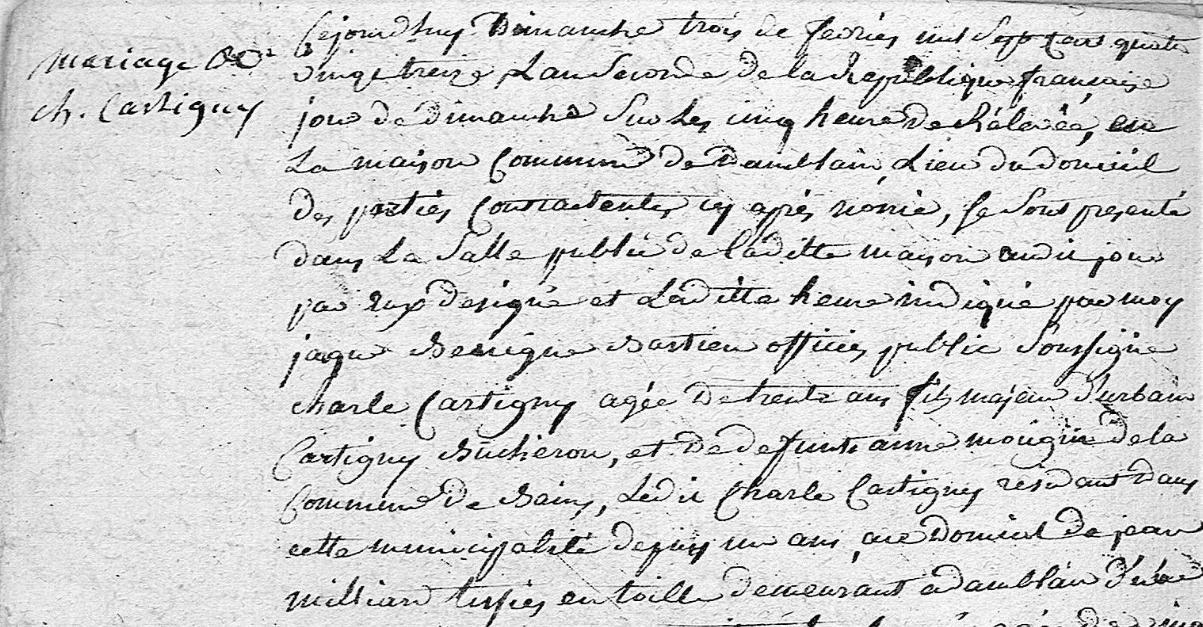 mariage
ch. Cartigny
Cejourdhuy Dimanche trois de fevrier mil Sept Cent quatre
vingt treize Lan Seconde de la Republique française
jour de dimanche Sur Les cinq heure de Rélevée, en
La maison Commune de Damblain, Lieu du domicil
des parties Contractentes cy après nomé, Se Sont presenté
dans La Salle public de laditte maison audit jour
par Eux designé et Laditte heure indiqué par moy
jaque Benigne Bastien officier public Soussigné
charle Cartigny agée de trente ans fils majeur d'urbain
Cartigny Bucheron, et de defunte anne mougin de la
Commune de Bains, Ledit Charle Cartigny residant dans
cette municipalité depuis un ans, au Domicil de jean
milliard tissier en toille demeurant a damblain